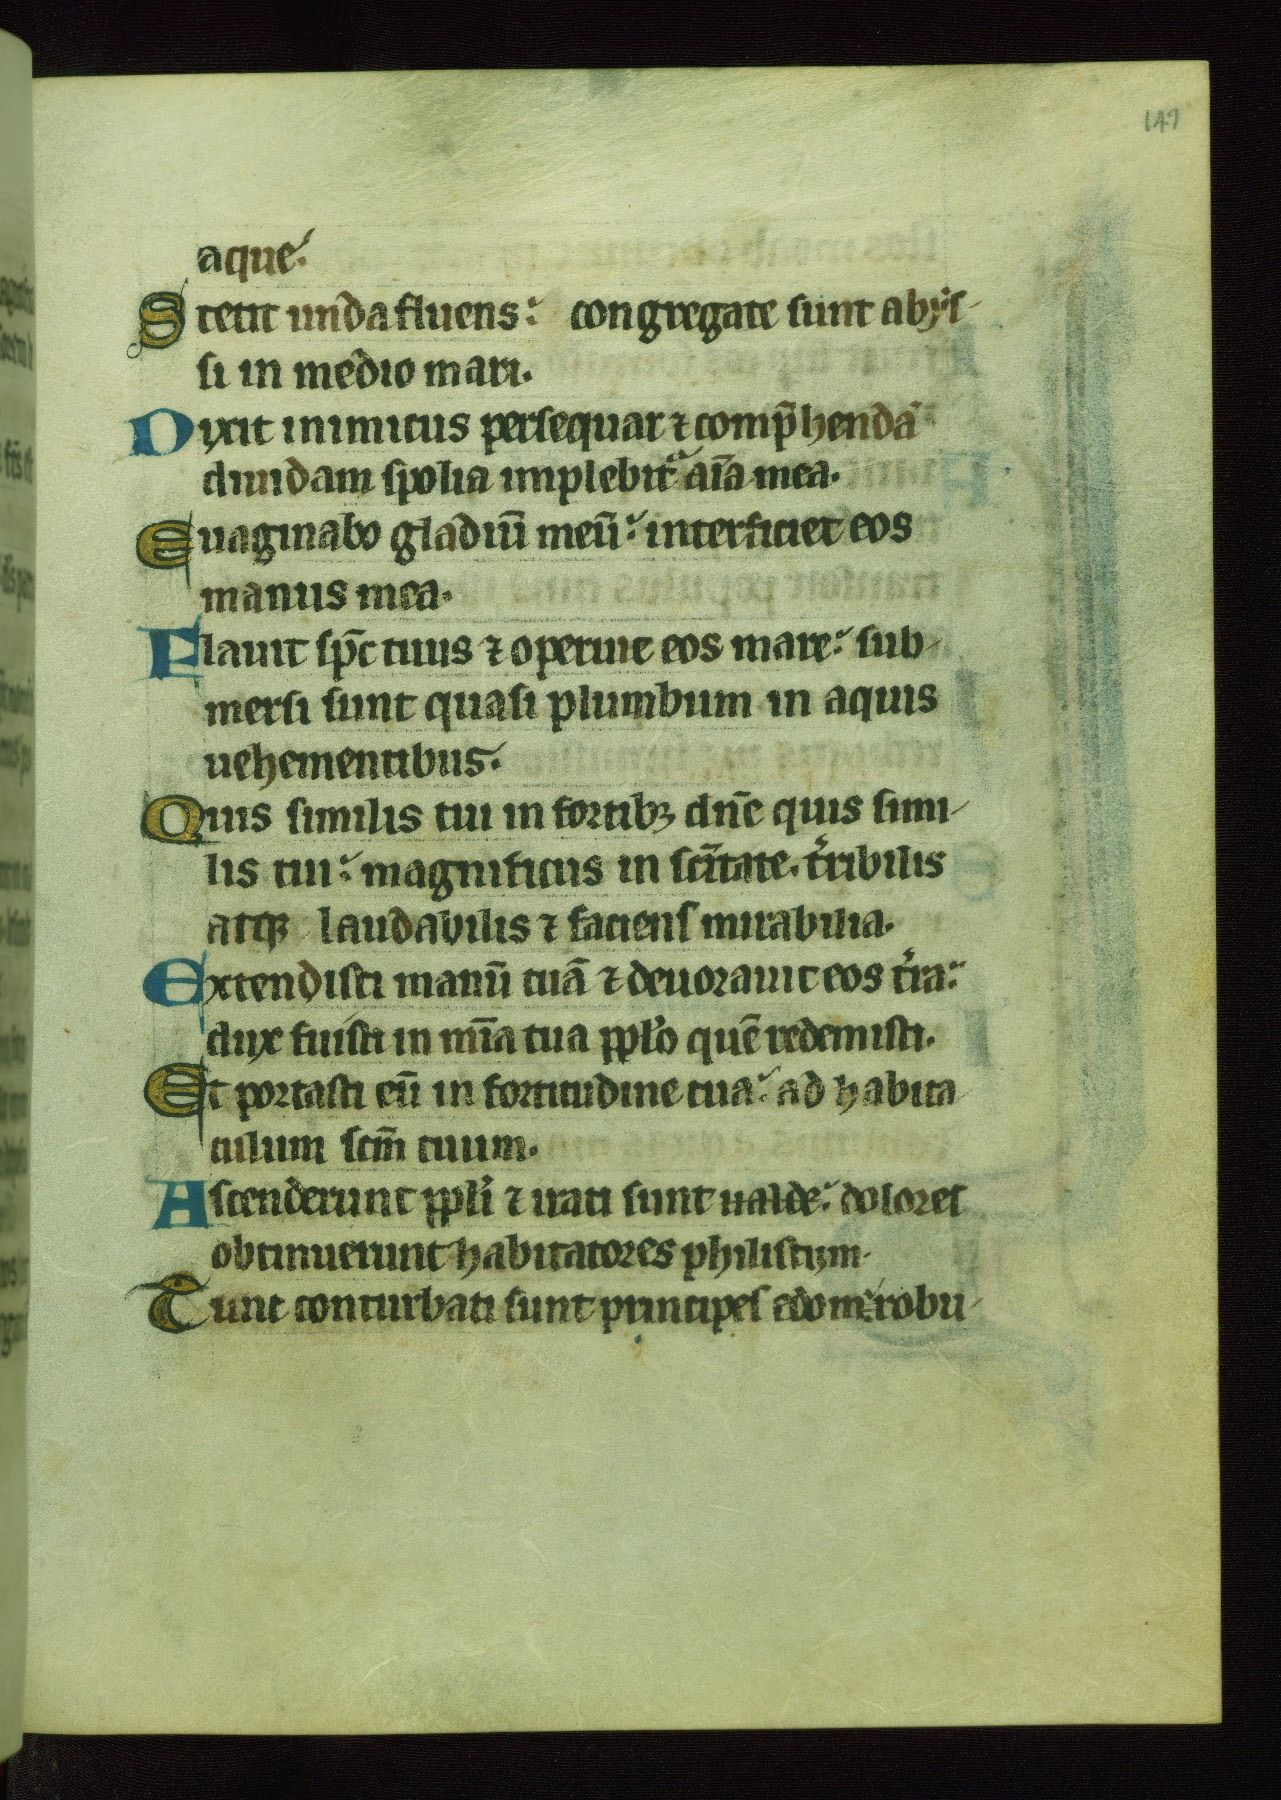 147
aque.
Stetit unda fluens: congregate sunt abys-
si in medio mari.
Dixit inimicus persequar ⁊ comp̄hendā
diuidam spolia implebit᷑ aīa mea.
Euaginabo gladiū meū: interficiet eos
manus mea.
Flauit sp̄c tuus ⁊ operuit eos mare: sub-
mersi sunt quasi plumbum in aquis
uehementibus.
Quis similis tui in fortibꝫ dn̄e quis simi-
lis tui: magnificus in scītate. t̓ribilis
atqꝫ laudabilis ⁊ faciens mirabilia.
Extendisti manū tuā ⁊ deuorauit eos t̓ra:
dux fuisti in mīa tua ppl̓o quē redemisti.
Et portasti eū in fortitudine tua: ad habita
culum scm̄ tuum.
Ascenderunt ppl̓i ⁊ irati sunt ualde: dolores
obtinuerunt habitatores philistym.
Tunc conturbati sunt principes edom: robu-